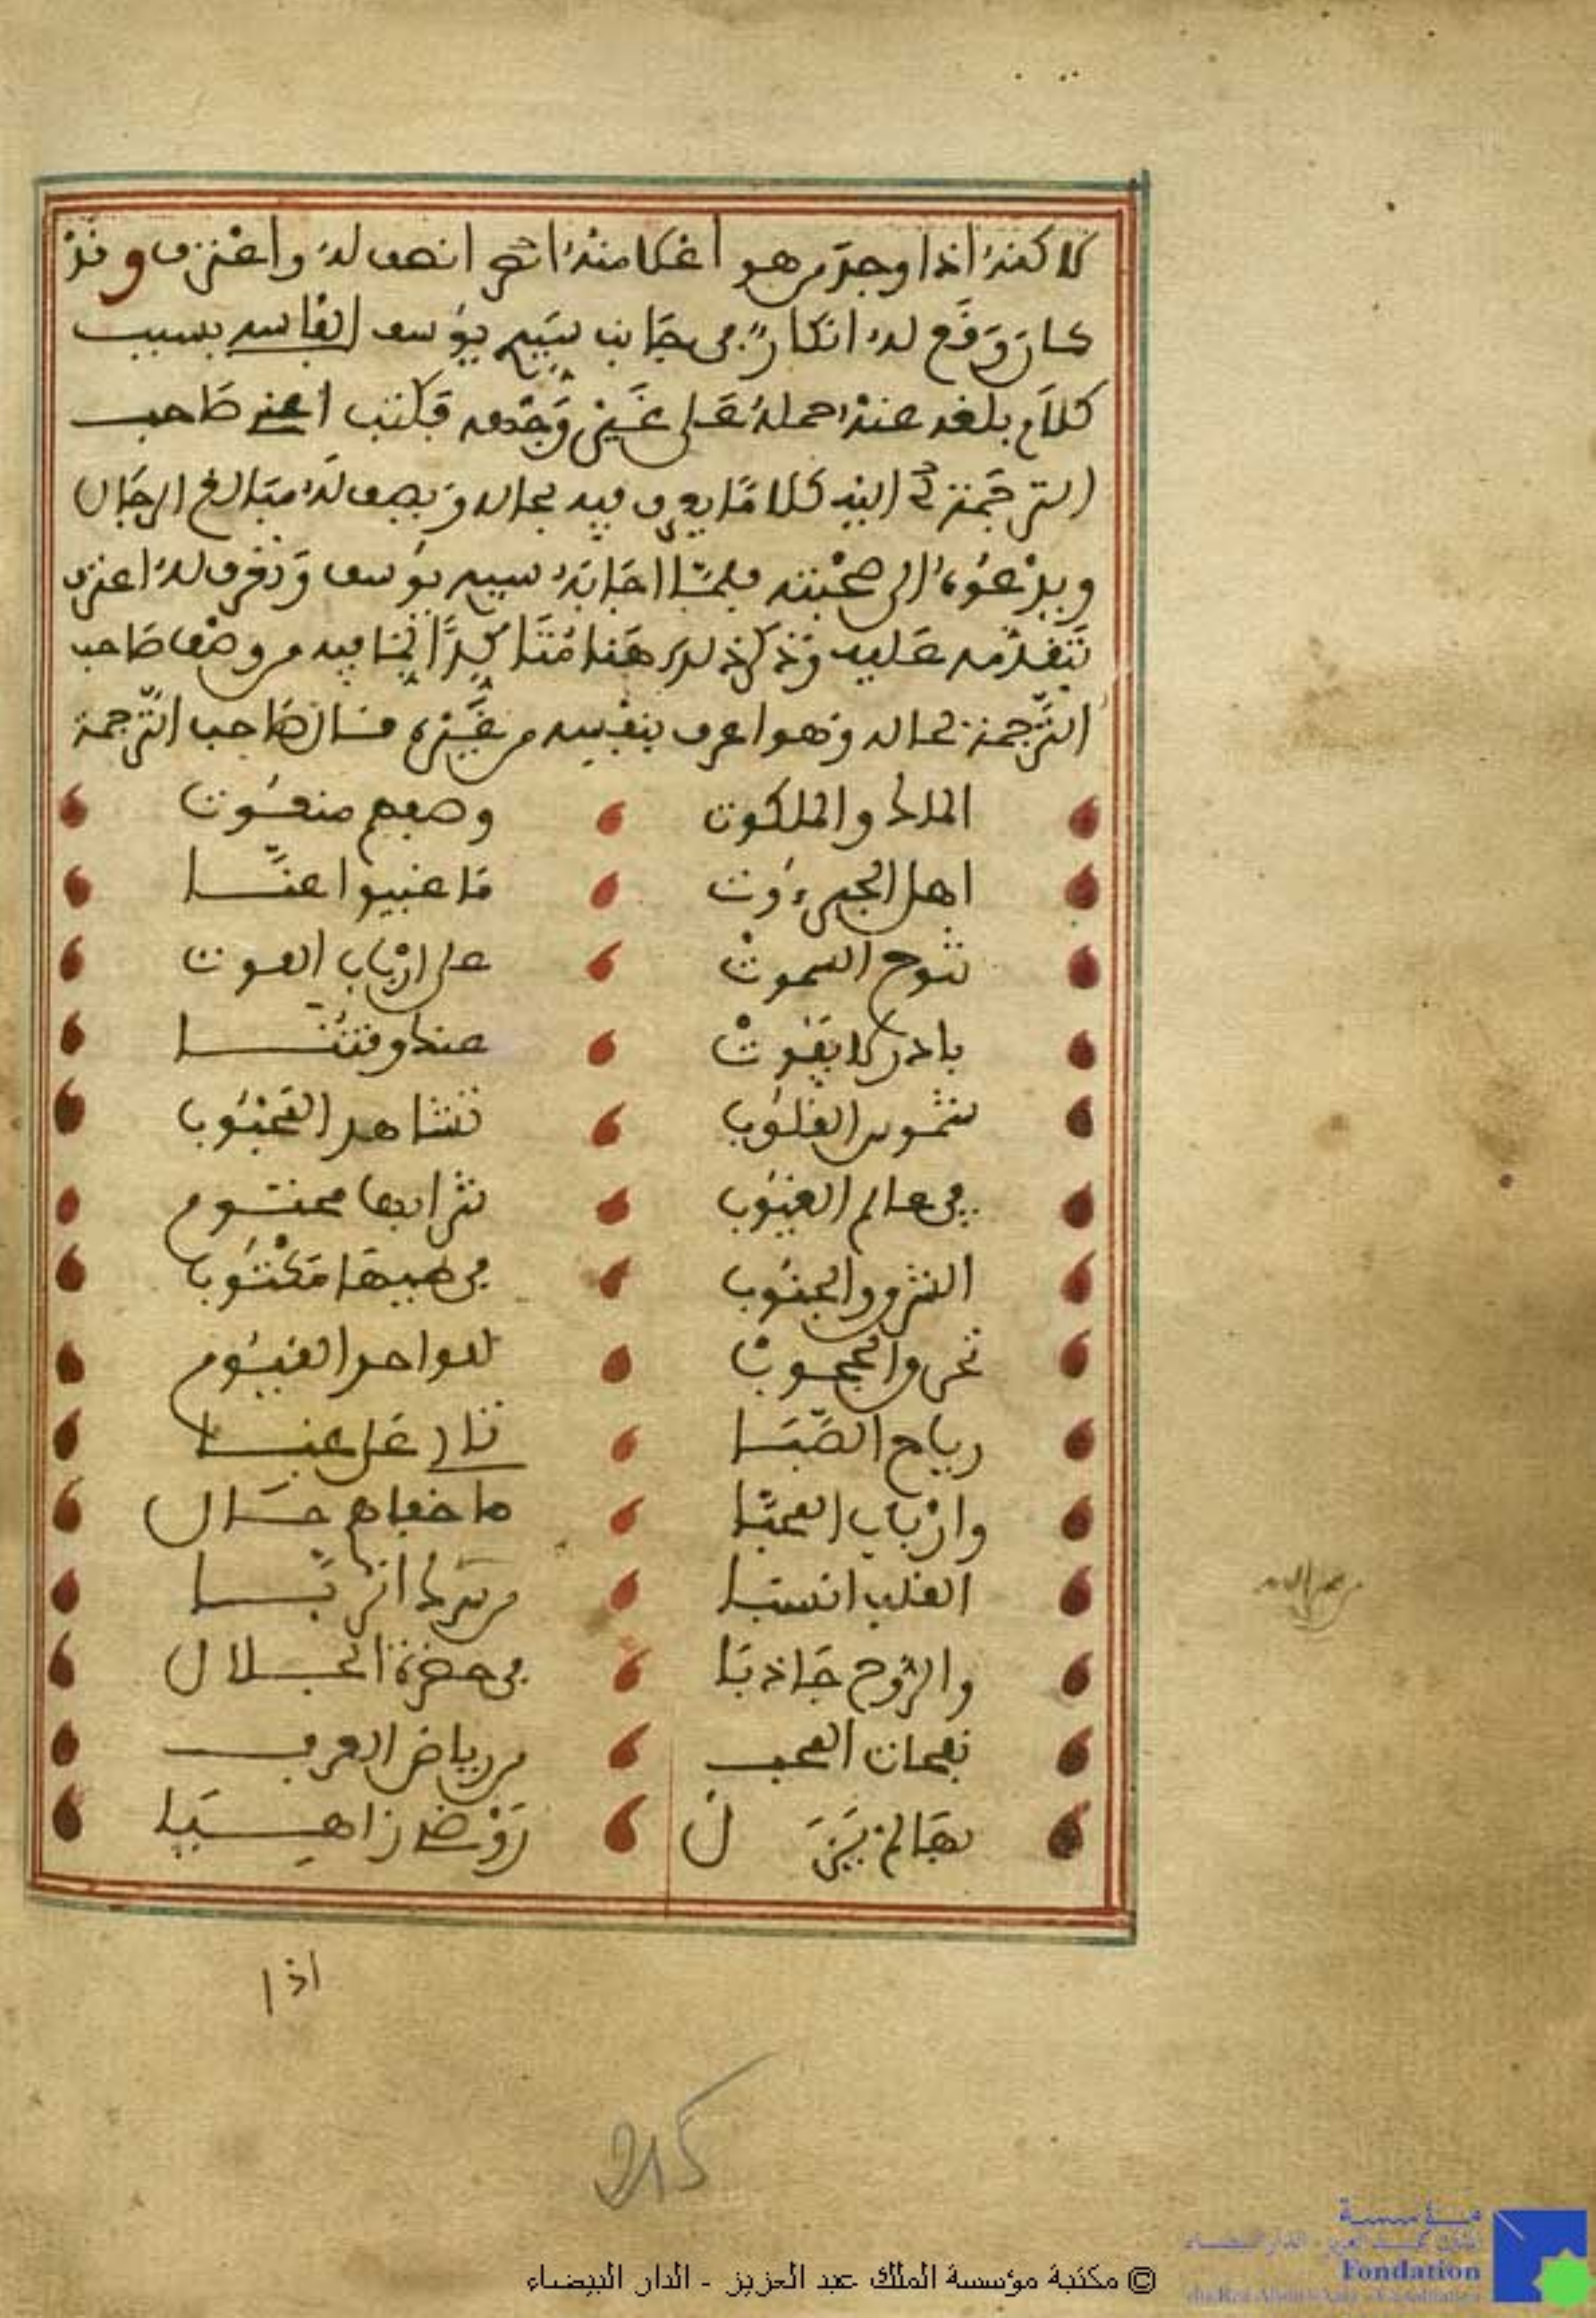 لاكنه اذا وجد من هو اعلا منه انصف له واعترف وقد
كان وقع له انكار من جانب سيدي يوسف الفاسي بسبب
كلام بلغه عنه حمله على غير وجهه فكتب اعني صاحب
الترجمة اليه كلاما يعرف فيه بحاله ويصف له مبالغ الرجال
ويدعوه الى صحبته فلما اجابه سيدي يوسف وتعرف له اعترف
بتقدمه عليه وذكر ذلك هنا لما فيه من وصف صاحب
الترجمة لحاله وهو اعرف بنفسه من غيره فقال صاحب الترجمة
الملك والملكوت وصفهم منعوت
اهل الجبروت ما غيبوا عنا
تنوح السموت على ارباب الفوت
بادر لا يفوت عنك وقتنا
شموس القلوب تشاهد المحبوب
في عالم الغيوب شرابها مختوم
الشرق والجنوب في طيها مكتوب
نحن والمحجوب للواحد القيوم
رياح الصبا
وارباب المحبا ما خفاهم حال
القلب انسبا من تلك التربا
والروح جاذبا في حضرة الجلال
نفحات المحب من رياض العرب
روض زاهيا
اذا
215
© مكتبة مؤسسة الملك عبد العزيز - الدار البيضاء
مؤسسة
الملك عبد العزيز - الدار البيضاء
Fondation
du Roi Abdul-Aziz - Casablanca